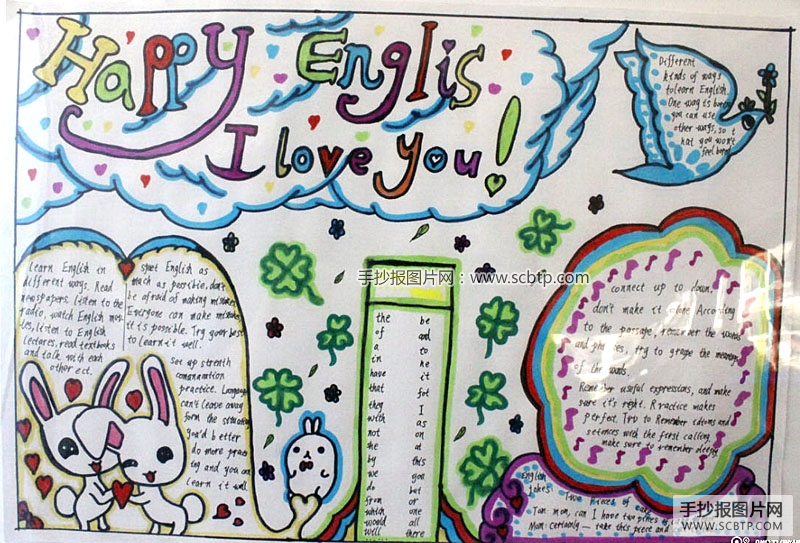 Happy Englis
I love you!
Different
kinds of ways
to learn English.
One way is bored
you can use
other ways, so t
hat you won't
feel bored
learn English in
different ways. Read
newspapers, listen to the
radio, watch English mov
ies, listen to English
lectures, read textbooks
and talk with each
other ect.
speet English as
much as possible, don't
be afraid of making mistakes
Everyone can make mistakes
it is possible. Try your best
to learn it well.
Set up strenth
communation
practice. Language
can't leave away
form the
you'd better
do more pratic
ing and you can
learn it well
手抄报图片网：www.scbtp.com
the be
of and
a to
in he
have it
that for
they I
with as
not on
she at
by this
we you
do but
from or
which one
would all
will there
connect up to down.
don't make it alone According
to the passage, remember the words
and phrases, try to grape the meaning
of the words.
Remember useful expressions, and make
sure it's right. Practice makes
perfect. Try to Remember idioms and
setences with the first calling
make sure to remember deeply
English
Jokes: Two pieces of cake
Tom: mom, can I have two pieces of
Mom: certainly — take this piece and
手抄报图片网
WWW.SCBTP.COM